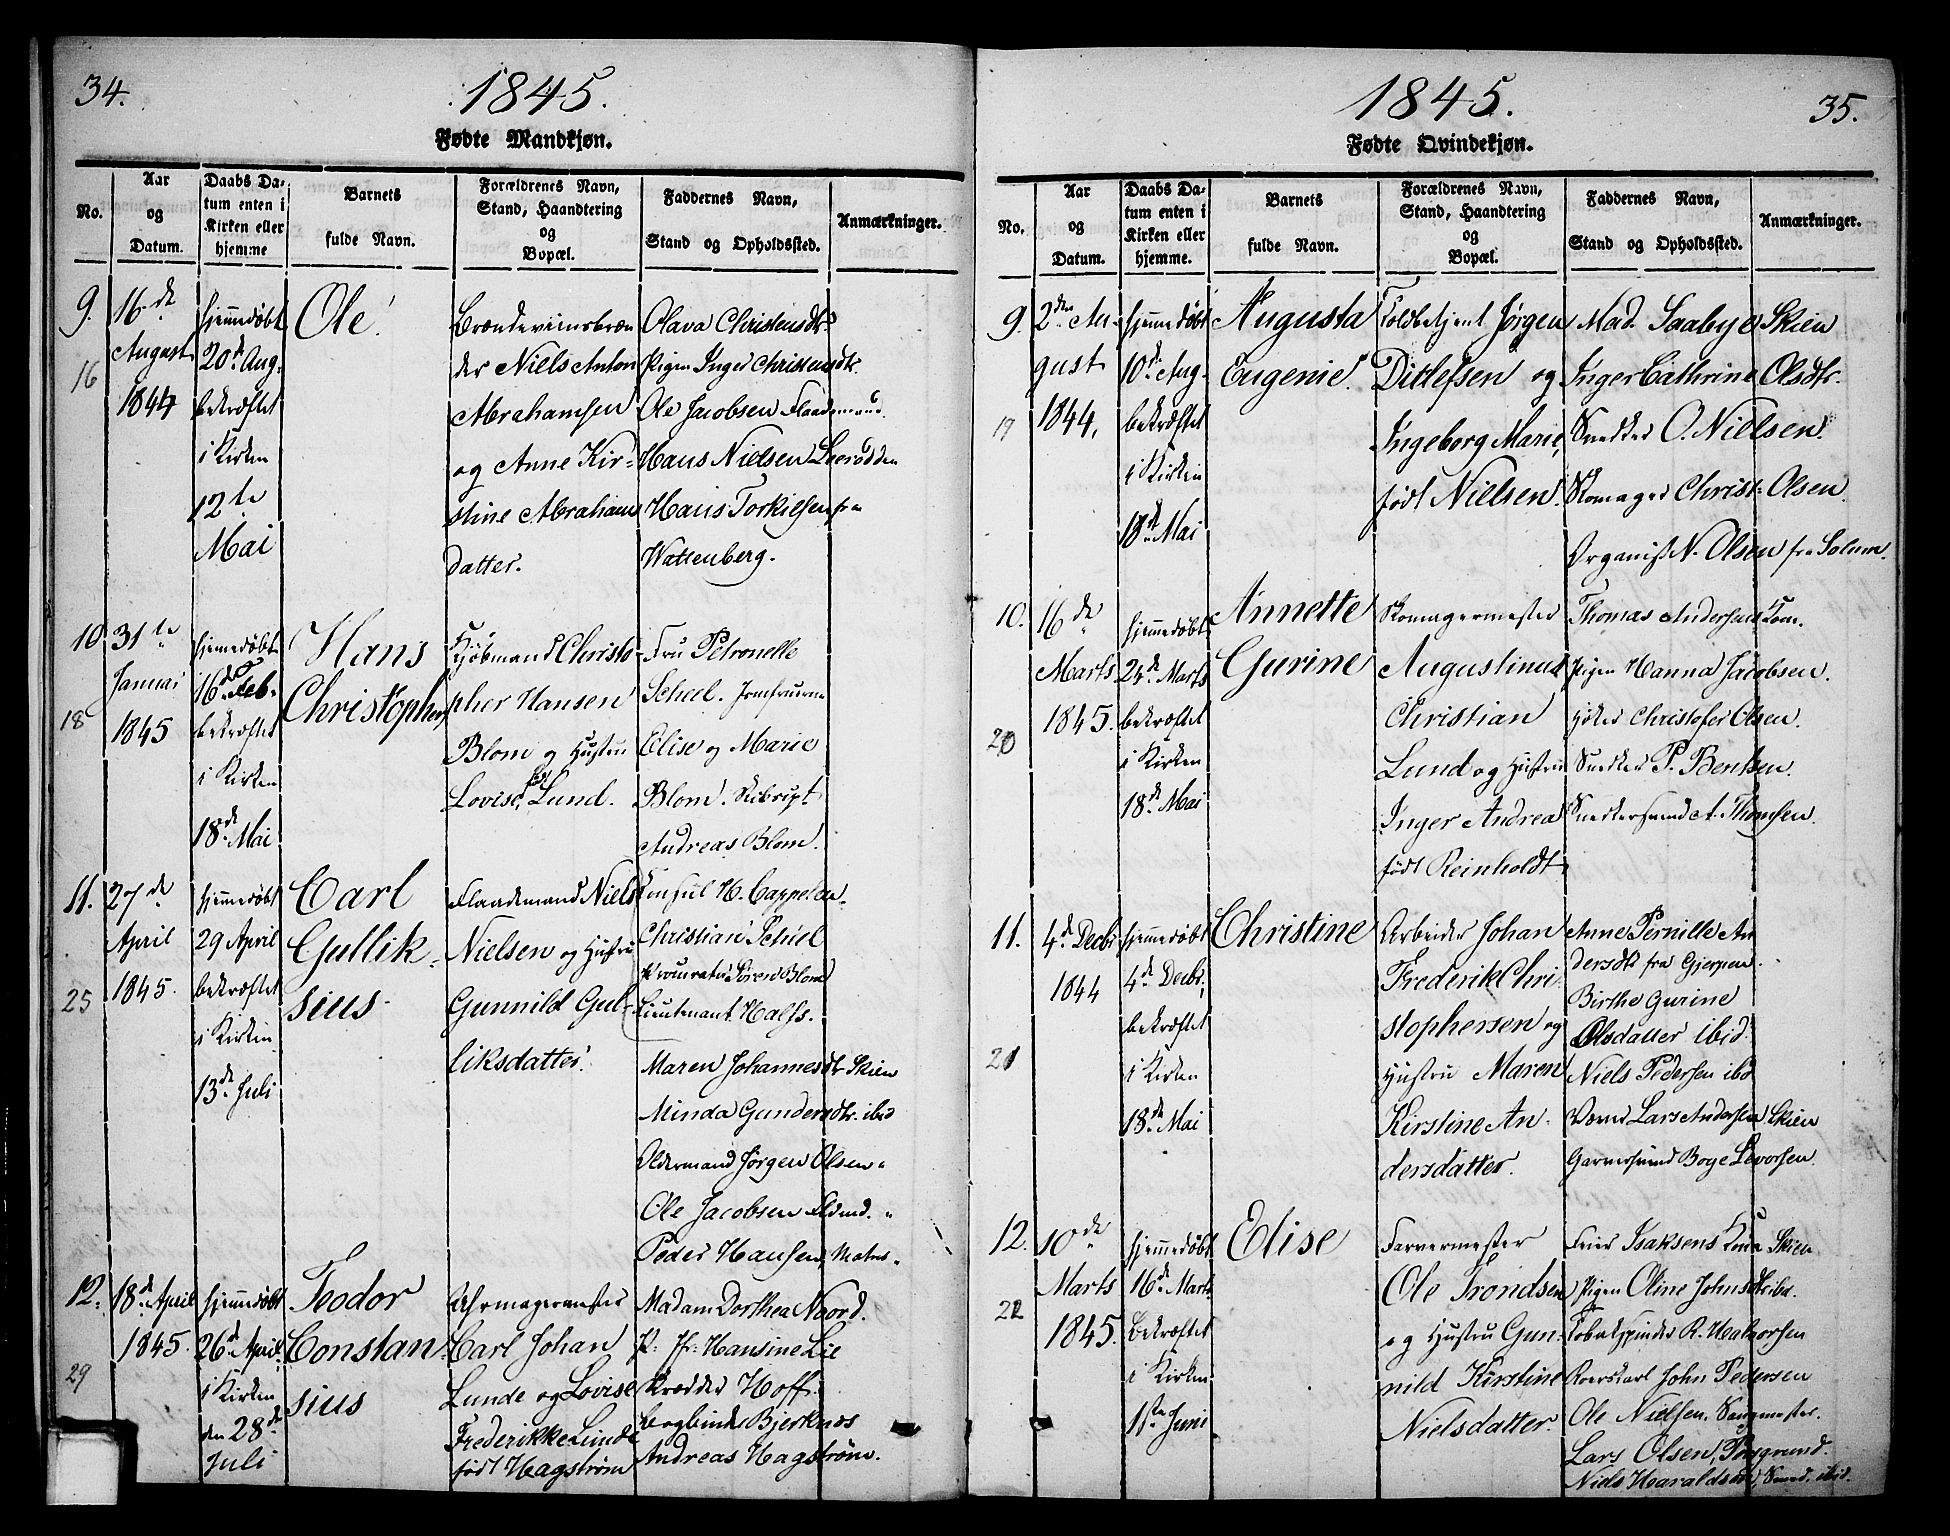 34.
1845.
Fødte Mandkjøn.
No.
Aar
og
Datum.
Daabs Da-
tum enten i
Kirken eller
hjemme
Barnets
fulde Navn.
Forældrenes Navn,
Stand, Haandtering
og
Bopæl.
Faddernes Navn,
Stand og Opholdssted.
Anmærkninger.
9.
16
16de
August
1844
hjemmedøbt
20d Aug.
bekræftet
i Kirken
12te
Mai
Ole
Brændeviinsbræn
der Niels Anton
Abrahamsen
og Anne Kir-
stine Abrahams
datter.
Olava Christensdtr
Pigen Inger Christensdtr.
Ole Jacobsen Flaademand
Hans Nielsen
Hans Torkilsen fra
Wattenberg.
10.
18
31te
Januar
1845
hjemmedøbt
16de Feb.
bekræftet
i Kirken
18de Mai
Hans
Christopher
Kjøbmand Christo
pher Hansen
Blom og Hustru
Lovise, født Lund.
Fru Petronelle
Scheel. Jomfruerne
Elise og Marie
Blom.
Andreas Blom.
11.
25
27de
April
1845.
hjemmedøbt
29 April
bekræftet
i Kirken
13de Juli
Carl
Gullik-
sius
Flaademand Niels
Nielsen og Hustru
Gunnild Gul-
liksdatter.
Consul H. Cappelen
Christian Scheel
Procurator Søren Blom
Lieutenant Halfs.
Maren Johannesdtr Skien
Minda Gundersdtr. ibid
Oldermand Jørgen Olsen "
Ole Jacobsen "
Peder Hansen, Matros "
12.
29
18de April
1845.
hjemmedøbt
26d April
i Kirken
den 28de
Juli
Teodor
Constan
sius
Uhrmagermester
Carl Johan
Lunde og Lovise
Frederikke Lunde
født Hagstrøm
Madam Dorthea Noord.
Hansine Lie
Hoff.
Bogbinder Bjerknæs
Andreas Hagstrøm.
1845.
35.
Fødte Qvindekjøn.
No.
Aar
og
Datum.
Daabs Da-
tum enten i
Kirken eller
hjemme.
Barnets
fulde Navn.
Forældrenes Navn,
Stand, Haandtering
og
Bopæl.
Faddernes Navn,
Stand og Opholdssted.
Anmærkninger.
9.
19
2den Au-
gust
1844,
hjemmedøbt
10d Aug.
bekræftet
i Kirken
18de Mai
Augusta
Eugenie.
Toldbetjent Jørgen
Ditlefsen og
Ingeborg Marie,
født Nielsen.
Mad. Saabye Skien
Inger Cathrine Olsdtr.
Snedker O. Nielsen.
Skomager Christ: Olsen
Organist N. Olsen fra Solum.
10.
20
16de
Marts
1845.
hjemmedøbt
24de Marts
bekræftet
i Kirken
18de Mai
Annette
Gurine
Skomagermester
Augustinus
Christian
Lund og Hustru
Inger Andrea
født Reinholdt
Thomas Andersens Kone.
Pigen Hanna Jacobsen.
Høker Christofer Olsen.
Snedker P. Bentsen.
Snedkersvend A. Thomsen.
11.
21
4de Decbr
1844
hjemmedøbt
4de Decbr,
bekræftet
i Kirken
18de Mai
Christine
Arbeider Johan
Frederik Chri
stophersen og
Hustru Maren
Kirstine An-
dersdatter.
Anne Pernille An
dersdtr fra Gjerpen.
Birthe Gurine
Olsdatter ibid.
Niels Pedersen ibd
Lars Andersen Skien
Garversvend Boye Levorsen.
12.
22
10de
Marts
1845.
hjemmedøbt
16de Marts
bekræftet
i Kirken
1ste Juni
Elise
Farvermester
Ole Trondsen
og Hustru Gun-
nild Kirstine
Nielsdatter.
Feier Isaksens Kone Skien
Pigen Oline Johnsdtr ibd.
Tobakspinder R. Halvorsen
John Pedersen
Ole Nielsen.
Lars Olsen, Porsgrund.
Niels Haraldsen, Smed. ibid.